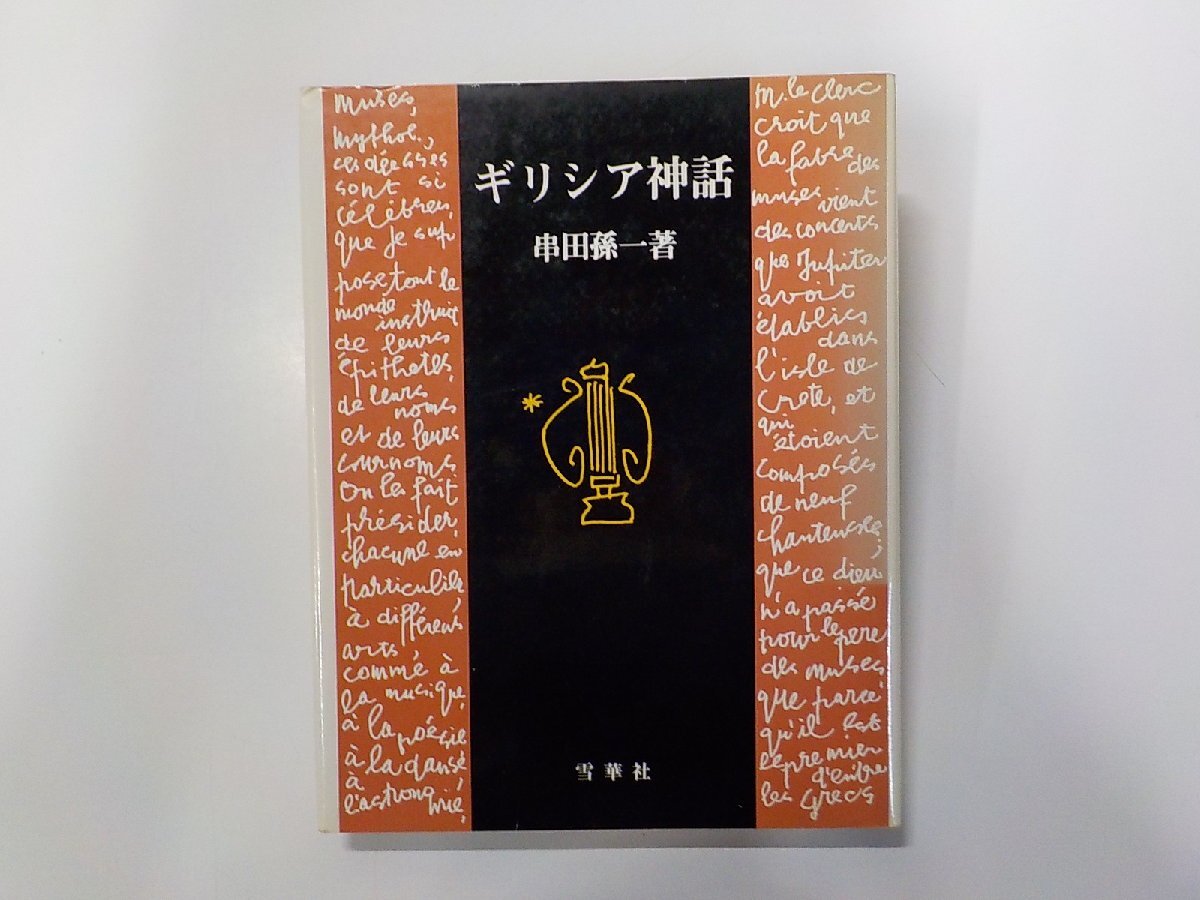 muses,
mythol.,
ces déesses
sont si
célèbres,
que je sup
pose tout le
monde instruit
de leurs
épithetes,
de leurs
noms
et de leurs
surnoms.
On les fait
présider,
chacune en
particulier,
à différens
arts,
comme à
la musique,
à la poésie
à la danse
à
l'astronomie,
ギリシア神話
串田孫一著
雪華社
M. le clerc
croit que
la fable des
muses vient
des concerts
que Jupiter
avoit
établies
dans
l'isle de
Crete, et
qui
étoient
composés
de neuf
chanteuses;
que ce dieu
n'a passé
pour le pere
des muses
que parce
qu'il est
le premier
d'entre
les Grecs